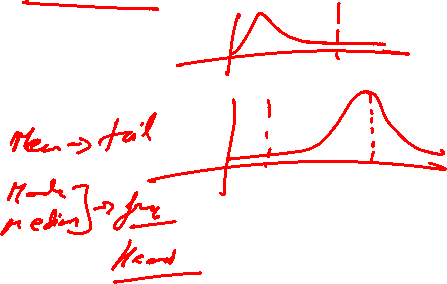 Mean → tail
Mode
median } → freq